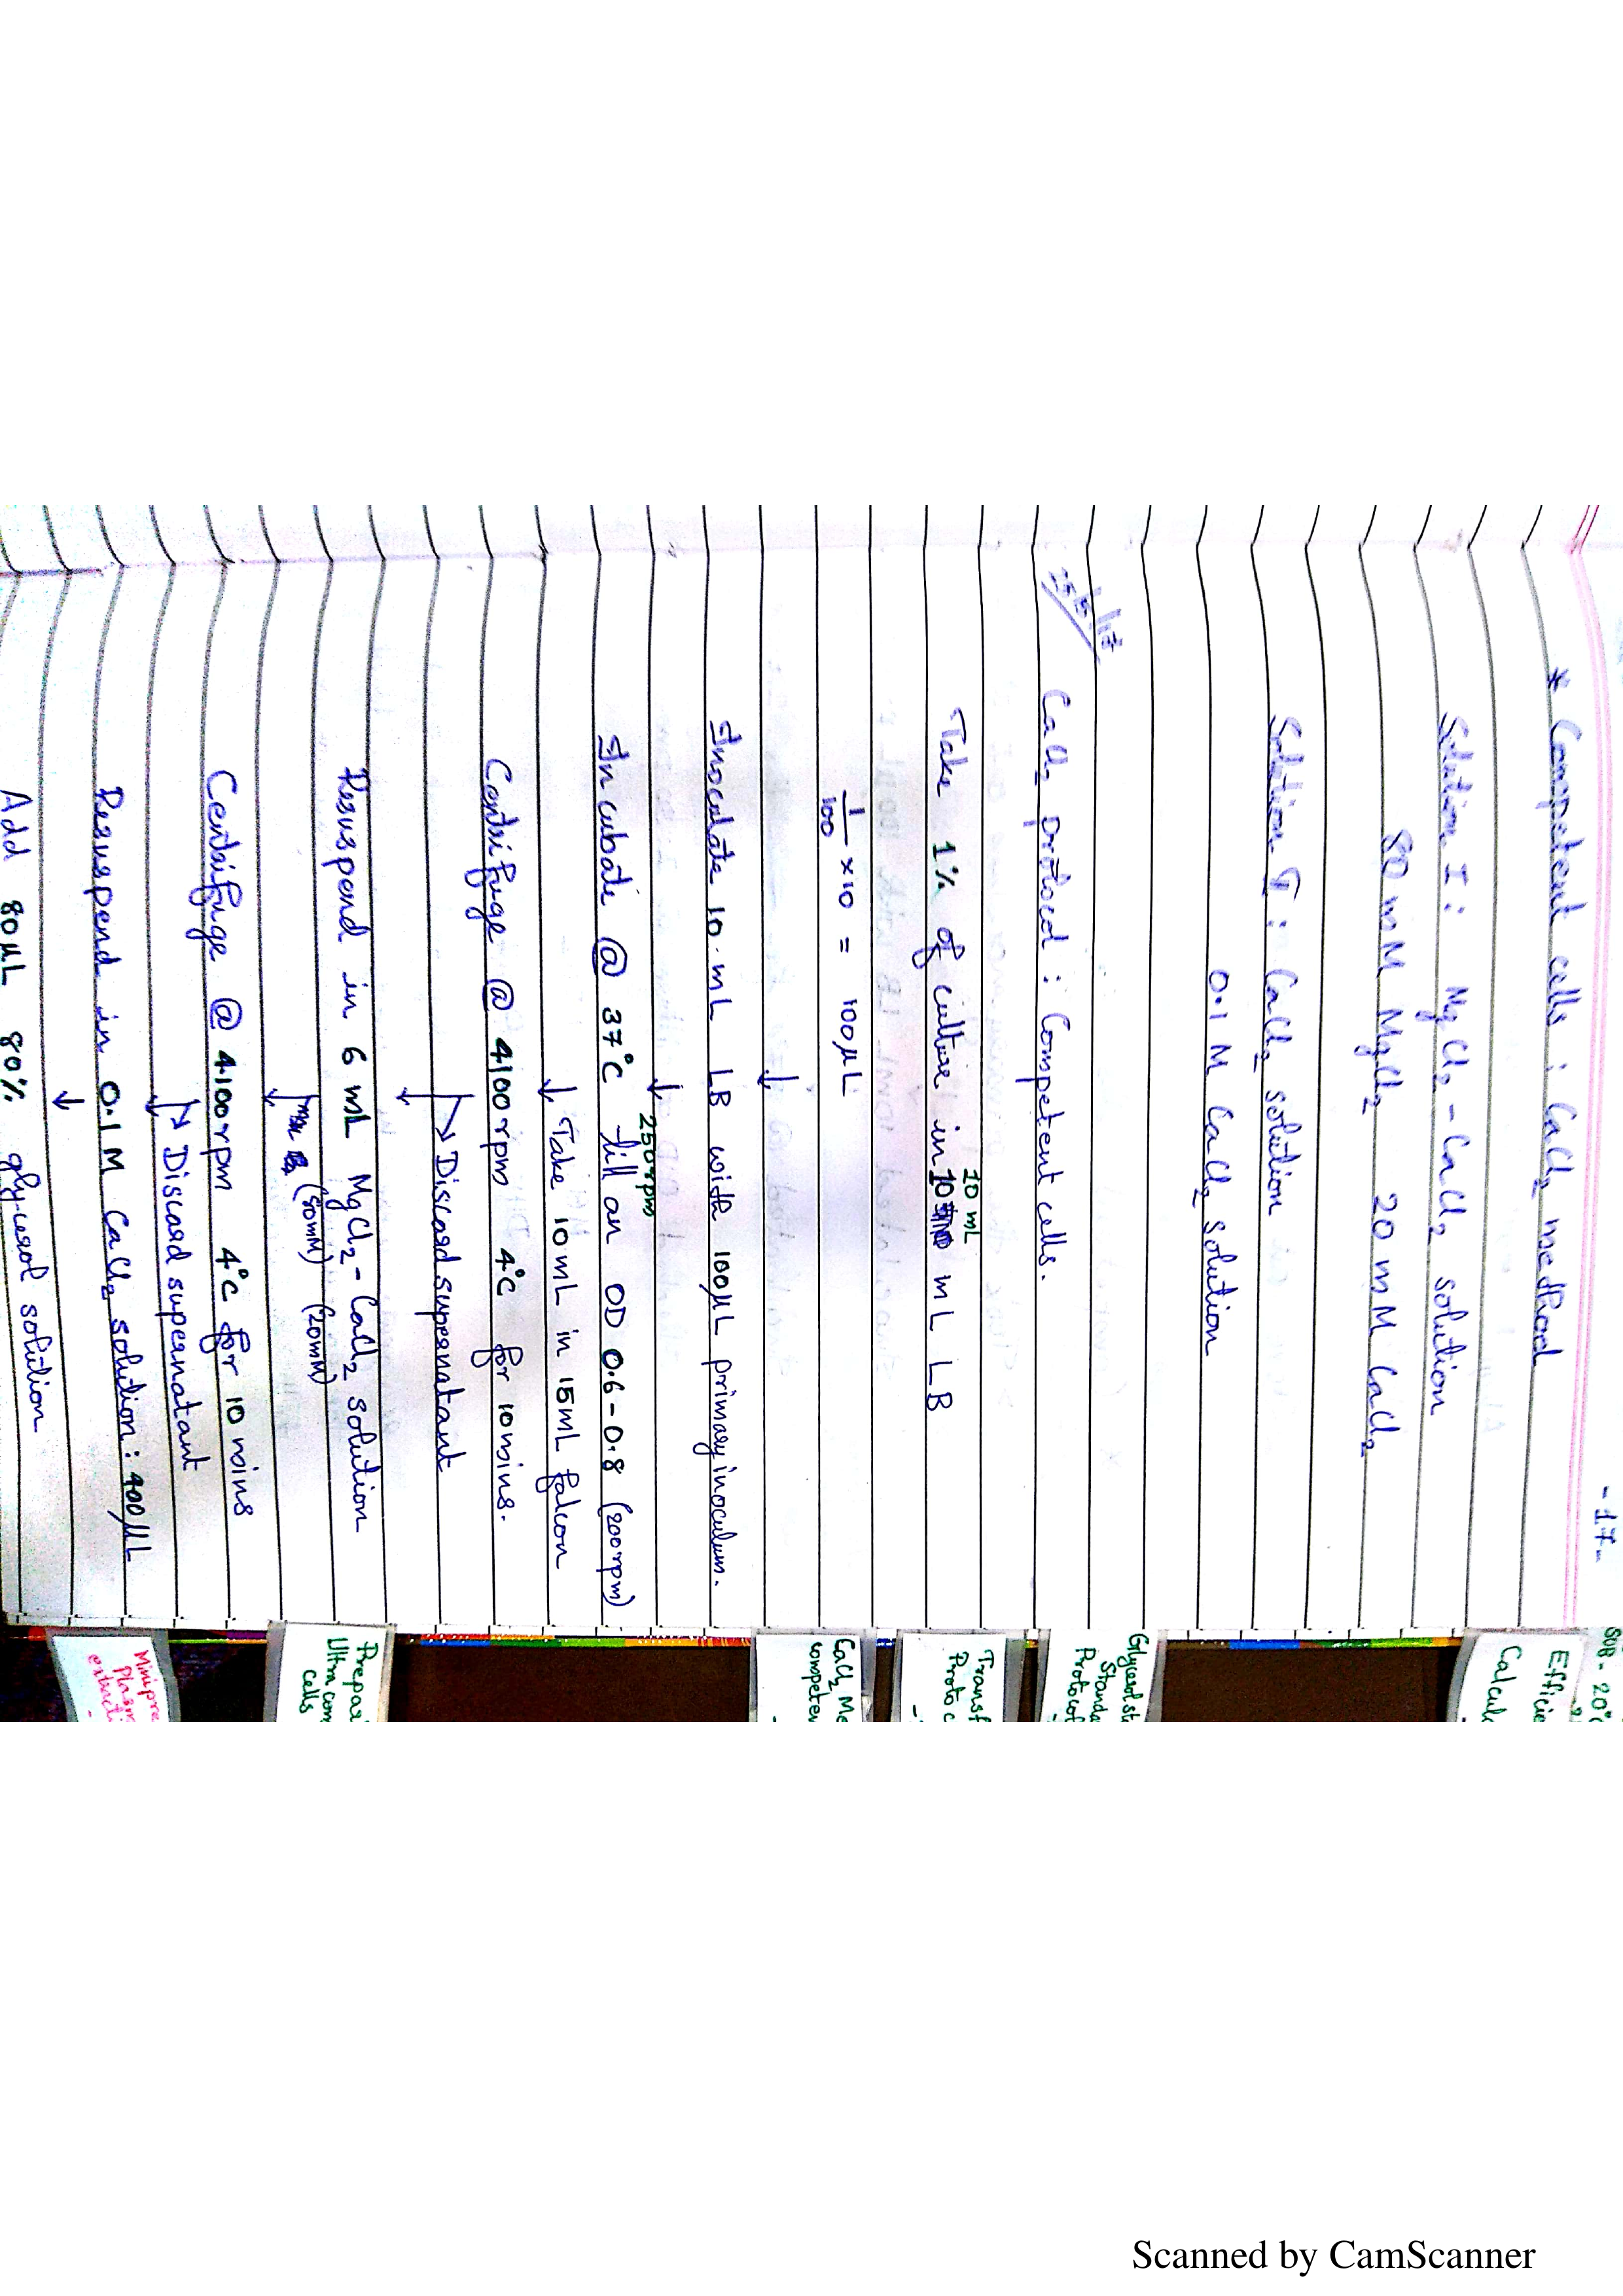 - 17 -
* Competent cells : CaCl₂ method
Solution I : MgCl₂ - CaCl₂ solution
80 mM MgCl₂ 20 mM CaCl₂
Solution II : CaCl₂ solution
0.1 M CaCl₂ solution
CaCl₂ protocol : Competent cells.
10 mL
Take 1% of culture in 10 mL LB
1/100 × 10 = 100 µL
↓
Inoculate 10 mL LB with 100µL primary inoculum.
↓ 250rpm
Incubate @ 37°C till an OD 0.6 - 0.8 (200rpm)
↓ Take 10 mL in 15mL falcon
Centrifuge @ 4100rpm 4°C for 10mins.
↓ → Discard supernatant
Resuspend in 6 mL MgCl₂ - CaCl₂ solution
↓ (80mM) (20mM)
Centrifuge @ 4100rpm 4°C for 10 mins
↓ → Discard supernatant
Resuspend in 0.1 M CaCl₂ solution : 400µL
↓
Add 80µL 80% glycerol solution
Efficie
Calcul
Glycerol st
Standa
Protocol
Transf
Protoc
CaCl₂ Me
competen
Prepar
Ultra com
cells
Minipre
Plasm
extract
Scanned by CamScanner